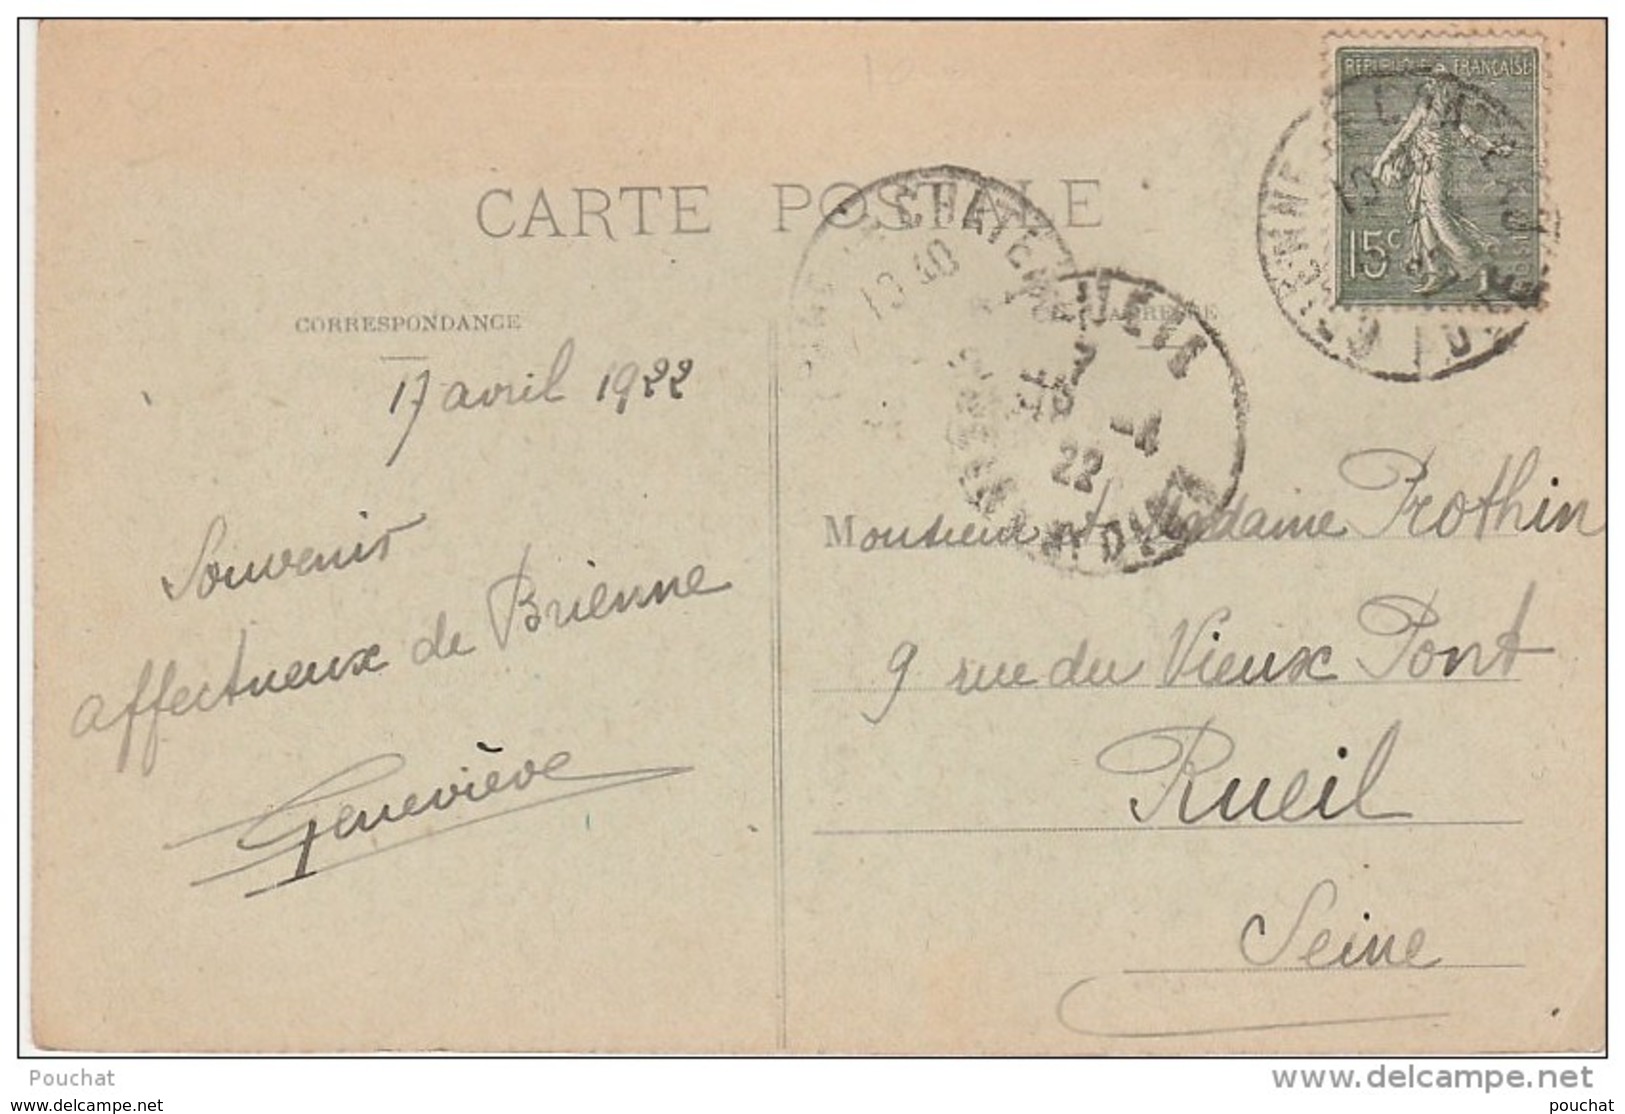 RÉPUBLIQUE FRANÇAISE
15c
CARTE POSTALE
CHATENAY
10 40
22
CORRESPONDANCE
17 avril 1922
Souvenir
affectueux de Brienne
Geneviève
Monsieur et Madame Prothin
9 rue du Vieux Pont
Rueil
Seine
Pouchat
www.delcampe.net
www.delcampe.net
pouchat